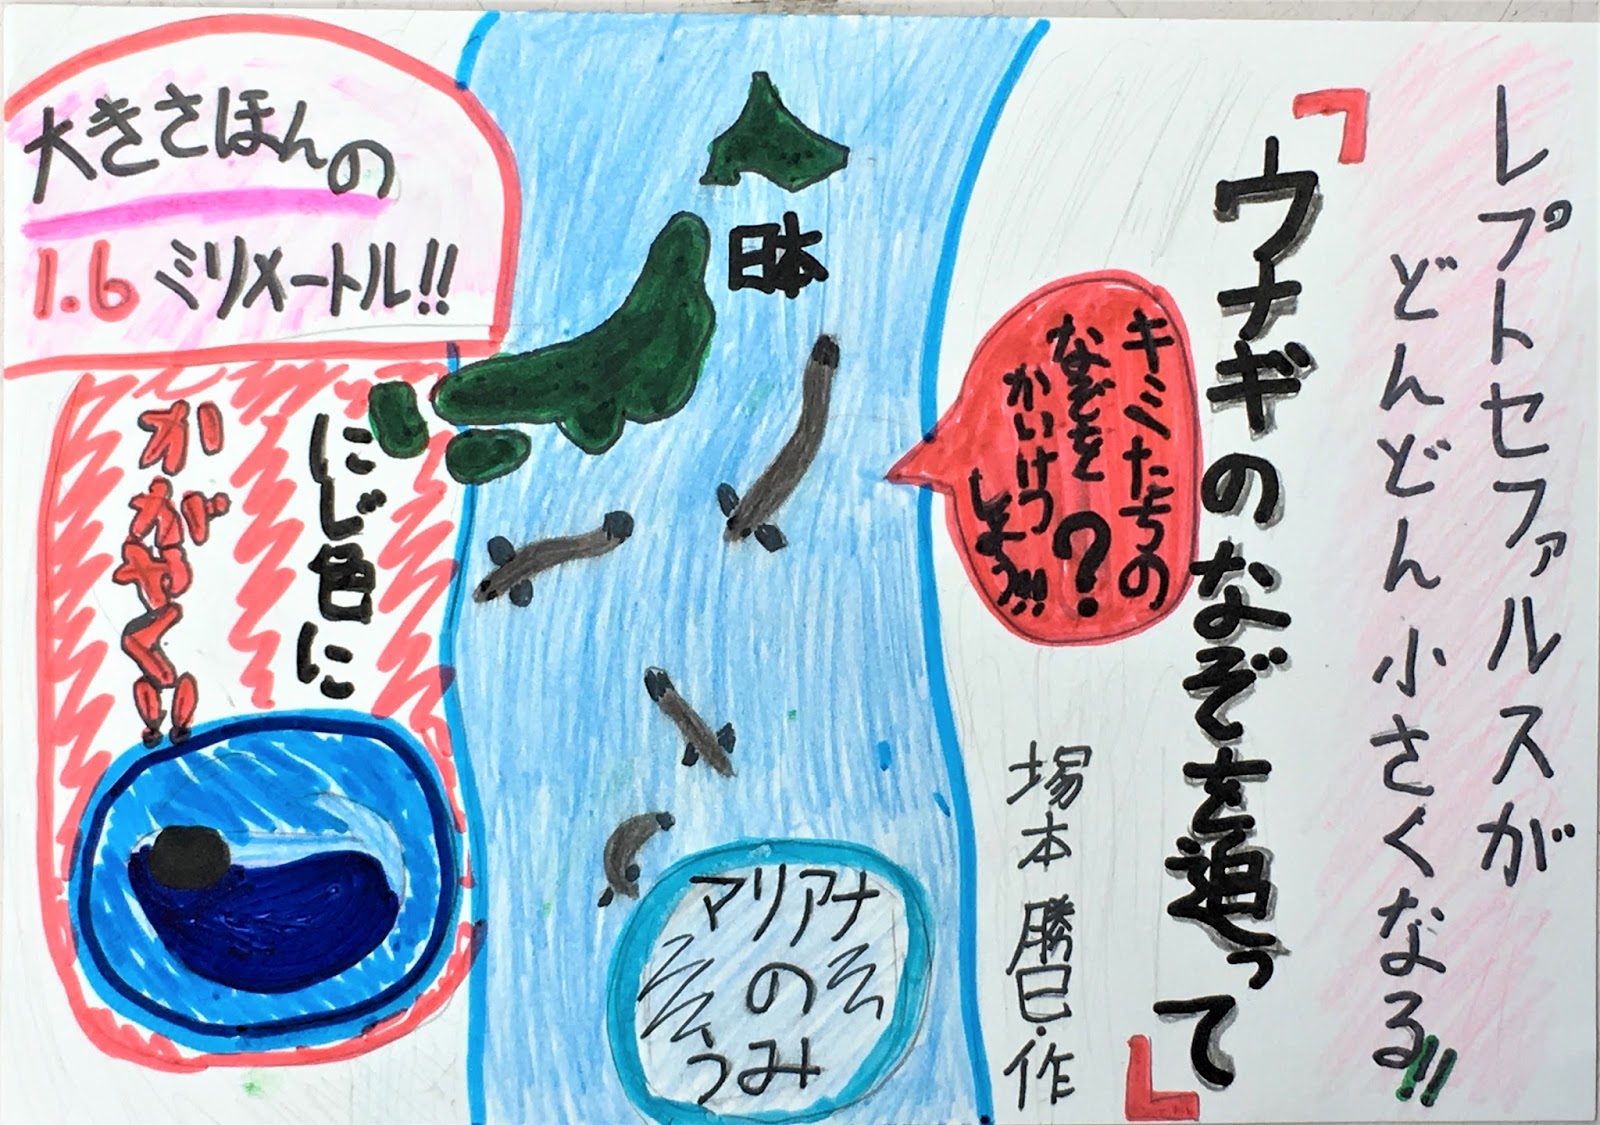 レプトセファルスが
どんどん小さくなる!!
「ウナギのなぞを追って」
塚本勝巳・作
キミたちの
なぞを?
かいけつ
しよう!!!
日本
マリアナ
の
うみ
大きさほんの
1.6ミリメートル!!
にじ色に
かがやく!!